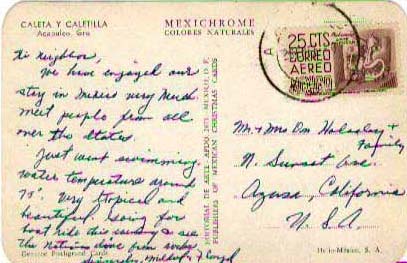 CALETA Y CALETILLA
Acapulco, Gro.
MEXICHROME
COLORES NATURALES
25 CTS
CORREO
AEREO
Hi neighbor,
We have enjoyed our
stay in Mexico very much.
meet people from all
over the States.
Just went swimming,
water temperature around
75°. Very tropical and
beautiful. Going for
boat ride this evening & see
the natives dive from rocks
Sincerely, Mildred & Lloyd
EDITORIAL DE ARTE, APDO. MEXICO, D. F.
PUBLISHERS OF MEXICAN CHRISTMAS CARDS
Mr. + Mrs Don &
Family
N. Sunset Ave.
Azusa, California
U. S. A.
Genuine Postcard
México, S. A.